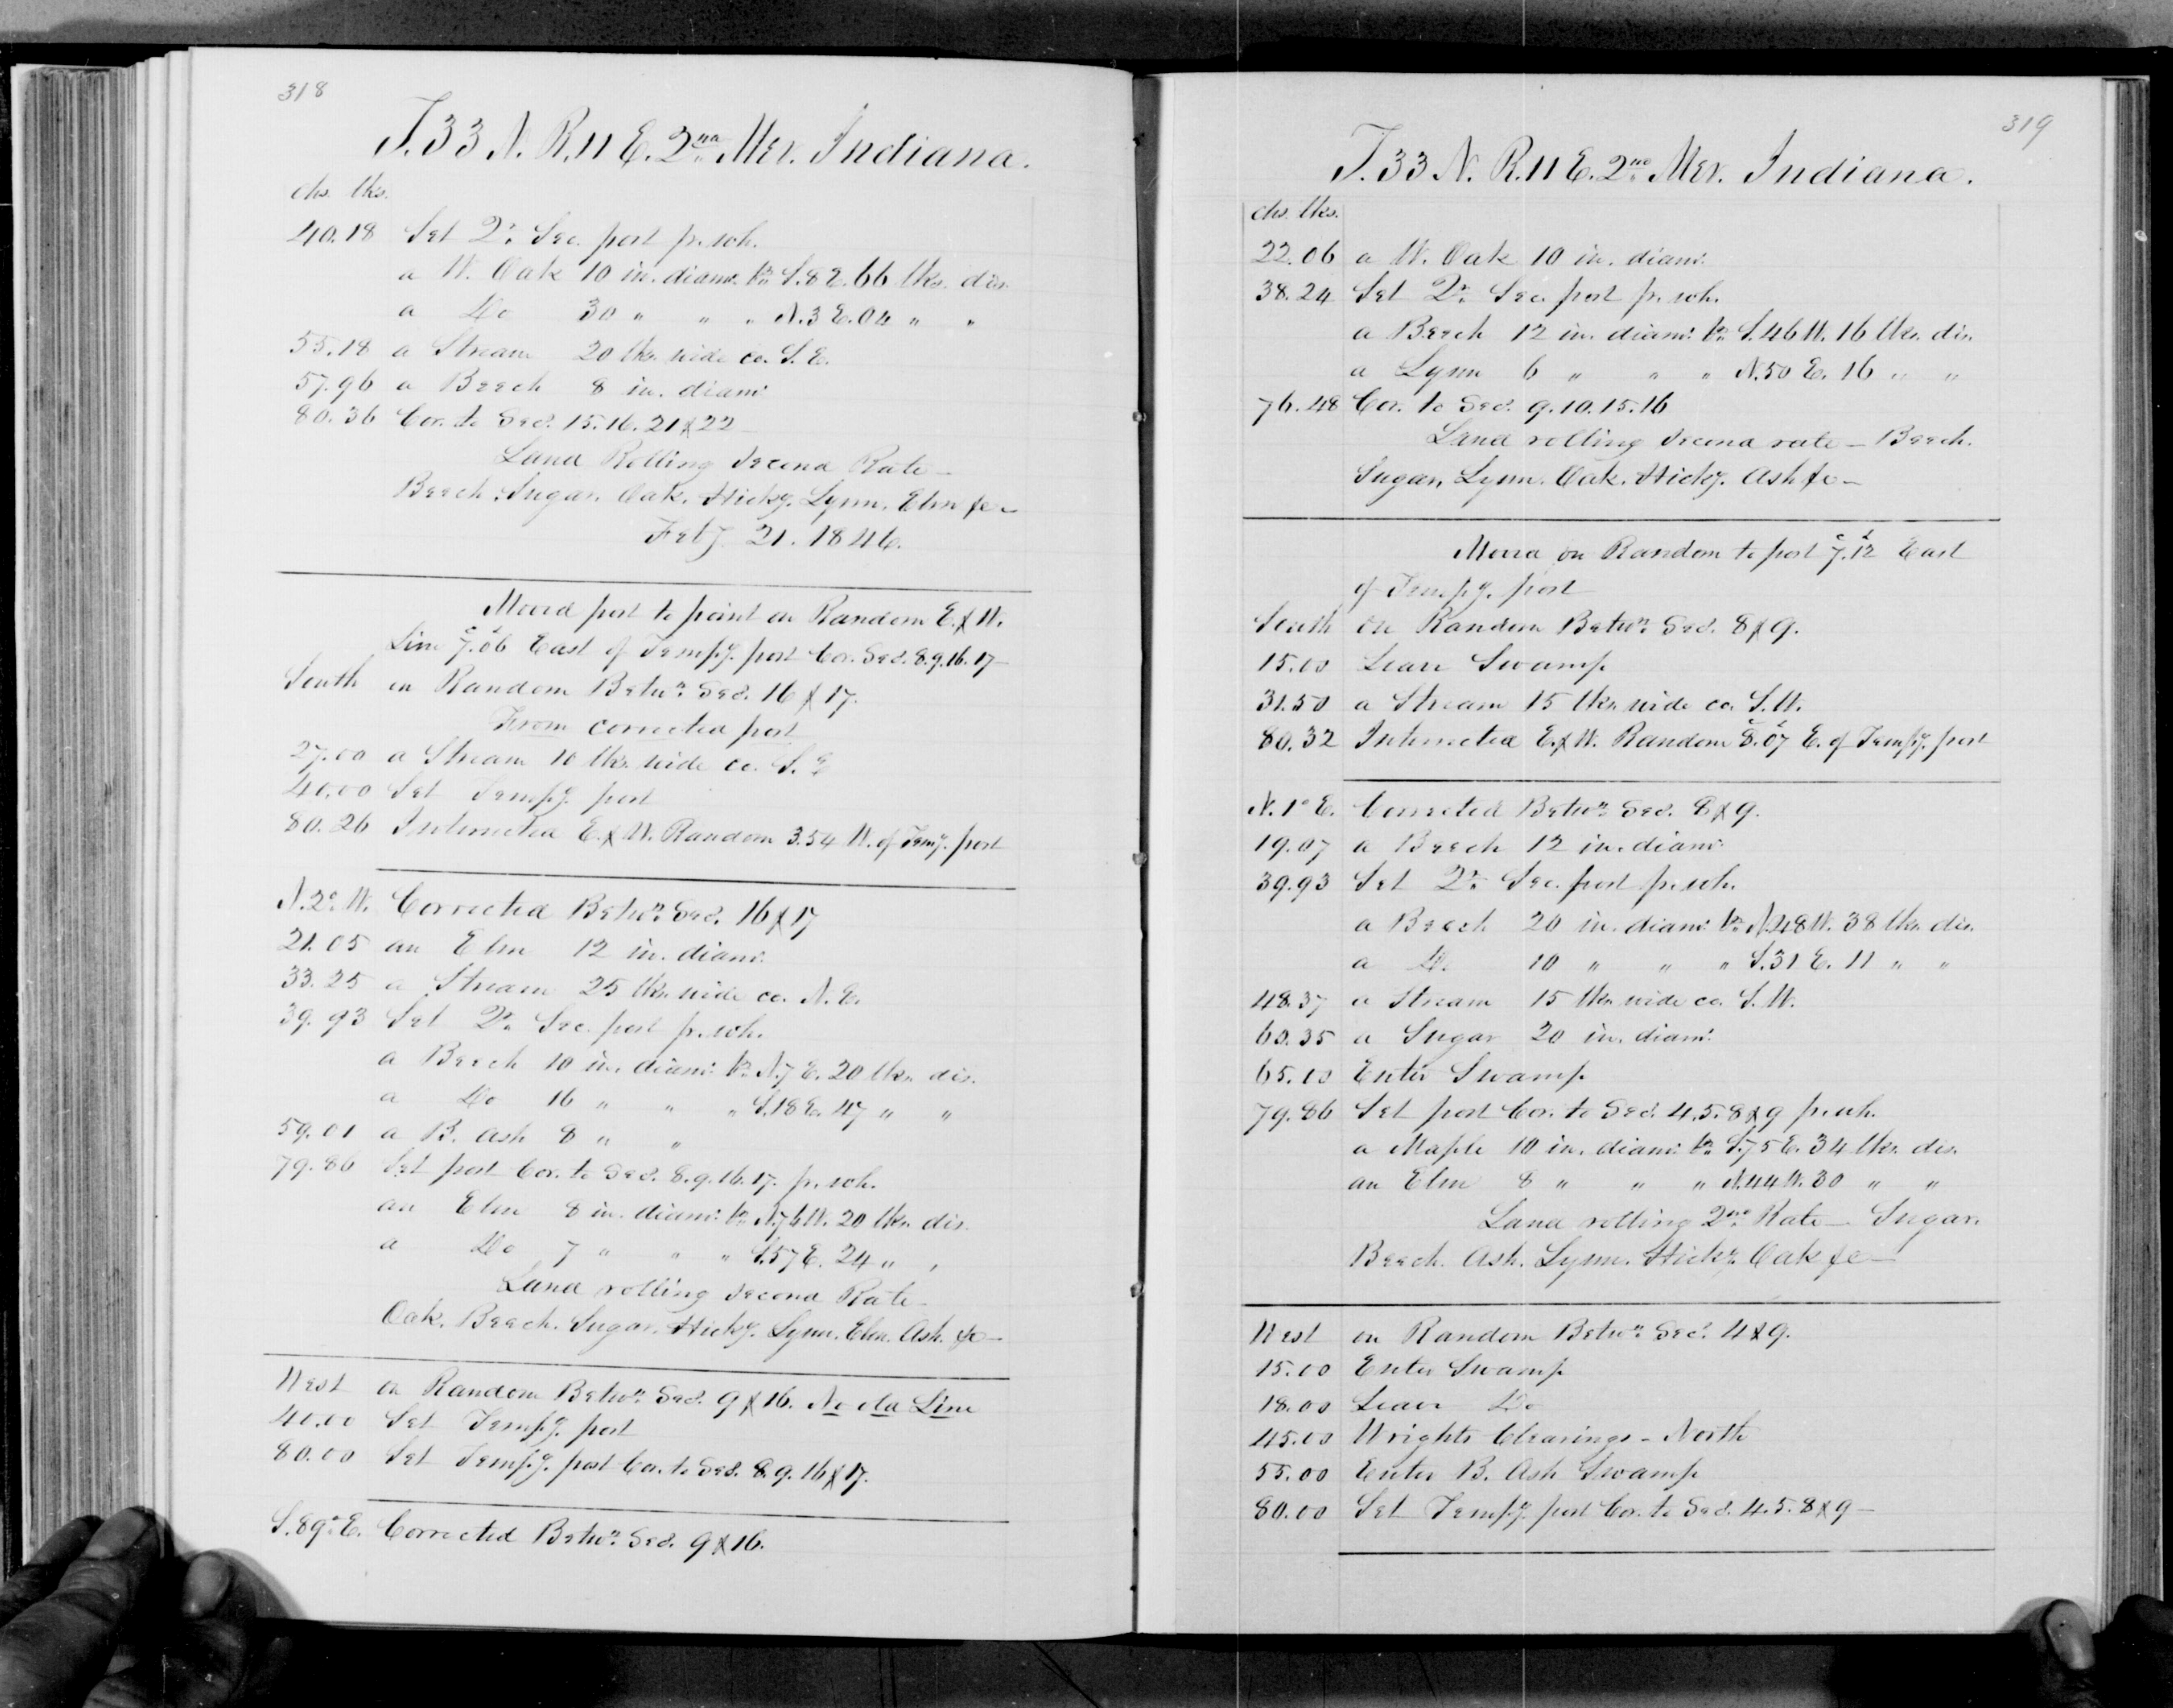 318
T. 33 N. R. 11 E. 2nd Mer. Indiana.
chs. lks.
40.18 Set Qr. Sec. post pr. sch.
a W. Oak 10 in. diamr. br. S. 8 E. 66 lks. dis.
a Do 30 " " " N. 3 E. 04 " "
55.18 a Stream 20 lks. wide co. S. E.
57.96 a Beech 8 in. diamr.
80.36 Cor. to Secs. 15. 16. 21 & 22
Land Rolling second Rate —
Beech, Sugar, Oak, Hicky. Lynn, Elm &c —
Feby. 21. 1846.
Moved post to point on Random E. & W.
Line 7.c06l East of Tempy. post Cor. Secs. 8. 9. 16. 17 —
South on Random Betwn. Secs. 16 & 17.
From corrected post
27.00 a Stream 10 lks. wide co. S. E
40.00 Set Tempy. post
80.26 Intersected E. & W. Random 3.54 W. of Temy. post
N. 2° W. Corrected Betwn. Secs. 16 & 17
21.05 an Elm 12 in. diamr.
33.25 a Stream 25 lks. wide co. N. E.
39.93 Set Qr. Sec. post pr. sch.
a Beech 10 in. diamr. br. N. 7 E. 20 lks. dis.
a Do 16 " " " S. 18 E. 47 " "
59.01 a B. Ash 8 " "
79.86 Set post Cor. to Secs. 8. 9. 16. 17. pr. sch.
an Elm 8 in. diamr. br. N. 76 W. 20 lks. dis.
a Do 7 " " " S. 57 E. 24 " "
Land rolling second Rate —
Oak, Beech, Sugar, Hicky. Lynn, Elm, Ash, &c —
West on Random Betwn. Secs. 9 & 16. No old Line
40.00 Set Tempy. post
80.00 Set Tempy. post Cor. to Secs. 8. 9. 16 & 17.
S. 89° E. Corrected Betwn. Secs. 9 & 16.
319
T. 33 N. R. 11 E. 2nd Mer. Indiana.
chs. lks.
22.06 a W. Oak 10 in. diamr.
38.24 Set Qr. Sec. post pr. sch.
a Beech 12 in. diamr. br. S. 46 W. 16 lks. dis.
a Lynn 6 " " " N. 50 E. 16 " "
76.48 Cor. to Secs. 9. 10. 15. 16
Land rolling second rate — Beech,
Sugar, Lynn, Oak, Hicky. Ash &c —
Moved on Random to post 7.c12l East
of Tempy. post
South on Random Betwn. Secs. 8 & 9.
15.00 Leave Swamp
31.50 a Stream 15 lks. wide co. S. W.
80.32 Intersected E. & W. Random 8.c07l E. of Tempy. post
N. 1° E. Corrected Betwn. Secs. 8 & 9.
19.07 a Beech 12 in. diamr.
39.93 Set Qr. Sec. post pr. sch.
a Beech 20 in. diamr. br. N. 48 W. 38 lks. dis.
a Do. 10 " " " S. 31 E. 11 " "
48.37 a Stream 15 lks. wide co. S. W.
60.35 a Sugar 20 in. diamr.
65.00 Enter Swamp
79.86 Set post Cor. to Secs. 4. 5. 8 & 9 pr. sch.
a Maple 10 in. diamr. br. S. 75 E. 34 lks. dis.
an Elm 8 " " " N. 44 W. 30 " "
Land rolling 2nd Rate — Sugar,
Beech, Ash, Lynn, Hicky. Oak &c —
West on Random Betwn. Secs. 4 & 9.
15.00 Enter Swamp
18.00 Leave Do
45.00 Wrights Clearings — North
55.00 Enter B. Ash Swamp
80.00 Set Tempy. post Cor. to Secs. 4. 5. 8 & 9 —